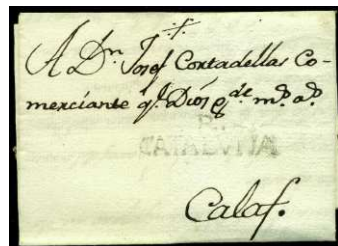 A Dn. Josef Cortadellas Co-
merciante q.e Dios g.de m.s a.s
Calaf.